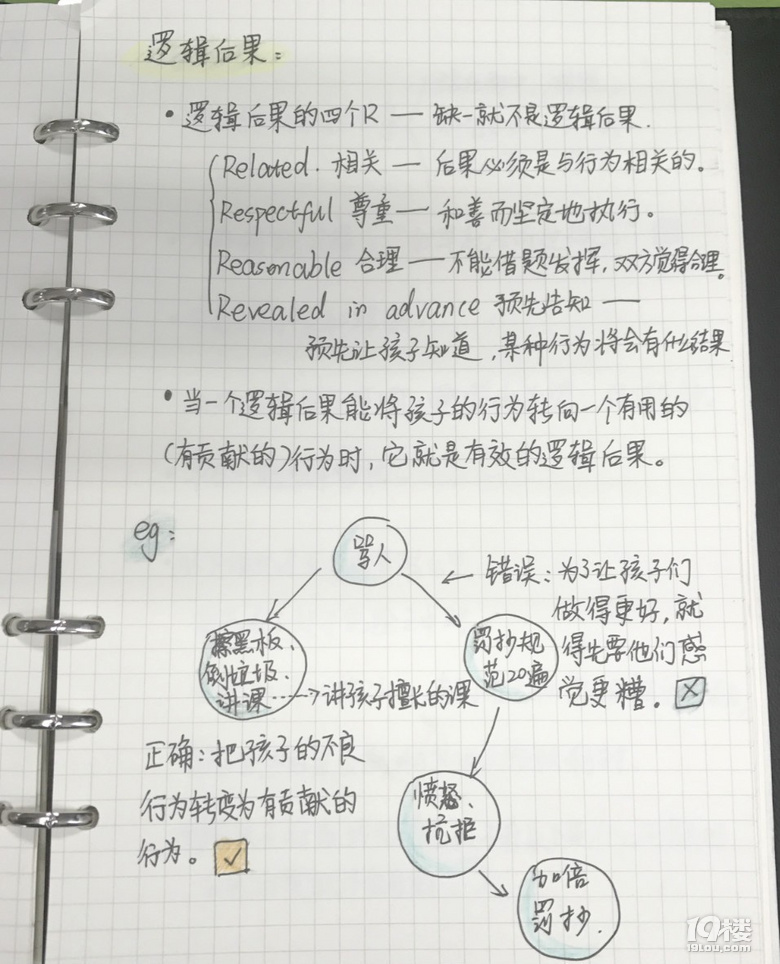 逻辑后果：
• 逻辑后果的四个R — 缺一就不是逻辑后果.
Related. 相关 — 后果必须是与行为相关的。
Respectful 尊重 — 和善而坚定地执行。
Reasonable 合理 — 不能借题发挥，双方觉得合理。
Revealed in advance 预先告知 —
预先让孩子知道，某种行为将会有什么结果
• 当一个逻辑后果能将孩子的行为转向一个有用的
(有贡献的)行为时，它就是有效的逻辑后果。
eg：
骂人
← 错误：为了让孩子们
做得更好，就
得先要他们感
觉更糟。 ☒
擦黑板、
倒垃圾、
讲课 ----> 讲孩子擅长的课
罚抄规
范20遍
正确：把孩子的不良
行为转变为有贡献的
行为。 ☑
愤怒、
抗拒
加倍
罚抄.
19楼
19lou.com